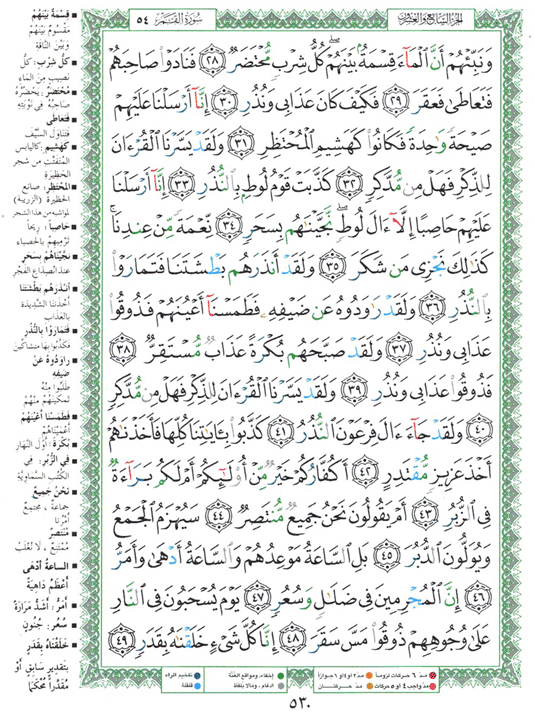 الجزء السابع والعشرون
سورة القمر ٥٤
وَنَبِّئْهُمْ أَنَّ ٱلْمَآءَ قِسْمَةٌۢ بَيْنَهُمْ ۖ كُلُّ شِرْبٍ مُّحْتَضَرٌ ٢٨ فَنَادَوْا۟ صَاحِبَهُمْ
فَتَعَاطَىٰ فَعَقَرَ ٢٩ فَكَيْفَ كَانَ عَذَابِى وَنُذُرِ ٣٠ إِنَّآ أَرْسَلْنَا عَلَيْهِمْ
صَيْحَةً وَٰحِدَةً فَكَانُوا۟ كَهَشِيمِ ٱلْمُحْتَظِرِ ٣١ وَلَقَدْ يَسَّرْنَا ٱلْقُرْءَانَ
لِلذِّكْرِ فَهَلْ مِن مُّدَّكِرٍ ٣٢ كَذَّبَتْ قَوْمُ لُوطٍۭ بِٱلنُّذُرِ ٣٣ إِنَّآ أَرْسَلْنَا
عَلَيْهِمْ حَاصِبًا إِلَّآ ءَالَ لُوطٍ ۖ نَّجَّيْنَٰهُم بِسَحَرٍ ٣٤ نِّعْمَةً مِّنْ عِندِنَا ۚ
كَذَٰلِكَ نَجْزِى مَن شَكَرَ ٣٥ وَلَقَدْ أَنذَرَهُم بَطْشَتَنَا فَتَمَارَوْا۟
بِٱلنُّذُرِ ٣٦ وَلَقَدْ رَٰوَدُوهُ عَن ضَيْفِهِۦ فَطَمَسْنَآ أَعْيُنَهُمْ فَذُوقُوا۟
عَذَابِى وَنُذُرِ ٣٧ وَلَقَدْ صَبَّحَهُم بُكْرَةً عَذَابٌ مُّسْتَقِرٌّ ٣٨
فَذُوقُوا۟ عَذَابِى وَنُذُرِ ٣٩ وَلَقَدْ يَسَّرْنَا ٱلْقُرْءَانَ لِلذِّكْرِ فَهَلْ مِن مُّدَّكِرٍ
٤٠ وَلَقَدْ جَآءَ ءَالَ فِرْعَوْنَ ٱلنُّذُرُ ٤١ كَذَّبُوا۟ بِـَٔايَٰتِنَا كُلِّهَا فَأَخَذْنَٰهُمْ
أَخْذَ عَزِيزٍ مُّقْتَدِرٍ ٤٢ أَكُفَّارُكُمْ خَيْرٌ مِّنْ أُو۟لَٰٓئِكُمْ أَمْ لَكُم بَرَآءَةٌ
فِى ٱلزُّبُرِ ٤٣ أَمْ يَقُولُونَ نَحْنُ جَمِيعٌ مُّنتَصِرٌ ٤٤ سَيُهْزَمُ ٱلْجَمْعُ
وَيُوَلُّونَ ٱلدُّبُرَ ٤٥ بَلِ ٱلسَّاعَةُ مَوْعِدُهُمْ وَٱلسَّاعَةُ أَدْهَىٰ وَأَمَرُّ
٤٦ إِنَّ ٱلْمُجْرِمِينَ فِى ضَلَٰلٍ وَسُعُرٍ ٤٧ يَوْمَ يُسْحَبُونَ فِى ٱلنَّارِ
عَلَىٰ وُجُوهِهِمْ ذُوقُوا۟ مَسَّ سَقَرَ ٤٨ إِنَّا كُلَّ شَىْءٍ خَلَقْنَٰهُ بِقَدَرٍ ٤٩
قِسْمَةٌ بَيْنَهُمْ
مَقْسُومٌ بَيْنَهُمْ
وَبَيْنَ النَّاقَةِ
كُلُّ شِرْبٍ: كُلُّ
نَصِيبٍ مِنَ المَاءِ
مُحْتَضَرٌ: يَحْضُرُهُ
صَاحِبُهُ فِي نَوْبَتِهِ
فَتَعَاطَى
فَتَنَاوَلَ السَّيْفَ
كَهَشِيمِ: كاليابس
المُتَفَتِّت من شجر
الحَظِيرَة
المُحْتَظِرِ: صانع
الحظيرة (الزريبة)
لمواشيه من هذا الشجر
حَاصِبًا: ريحاً
ترميهم بالحصباء
نَجَّيْنَاهُمْ بِسَحَرٍ
عند انصداع الفجر
أَنْذَرَهُمْ بَطْشَتَنَا
أَخْذَتَنَا الشَّدِيدَةَ
بالعذاب
فَتَمَارَوْا بِالنُّذُرِ
فكذّبوا بها متشاكّين
رَاوَدُوهُ عَنْ
ضَيْفِهِ
طلبوا منه
تمكينهم منهم
فَطَمَسْنَا أَعْيُنَهُمْ
أعميناهم
بُكْرَةً: أوّل النهار
فِي الزُّبُرِ: في
الكتب السماوية
نَحْنُ جَمِيعٌ
جماعة، مجتمع
أمرنا
مُنْتَصِرٌ
ممتنع، لا نُغلب
السَّاعَةُ أَدْهَى
أَعْظَمُ دَاهِيَةً
أَمَرُّ: أَشَدُّ مَرَارَةً
سُعُرٍ: جُنُونٍ
خَلَقْنَاهُ بِقَدَرٍ
بتقدير سابق أَوْ
مُقَدَّرًا مُحْكَمًا
مدّ ٦ حركات لزوماً مدّ ٢ أو ٤ أو ٦ جوازاً إخفاء، ومواقع الغنّة تفخيم الراء
مدّ واجب ٤ أو ٥ حركات مدّ حركتان إدغام، وما لا يُلفظ قلقلة
٥٣٠